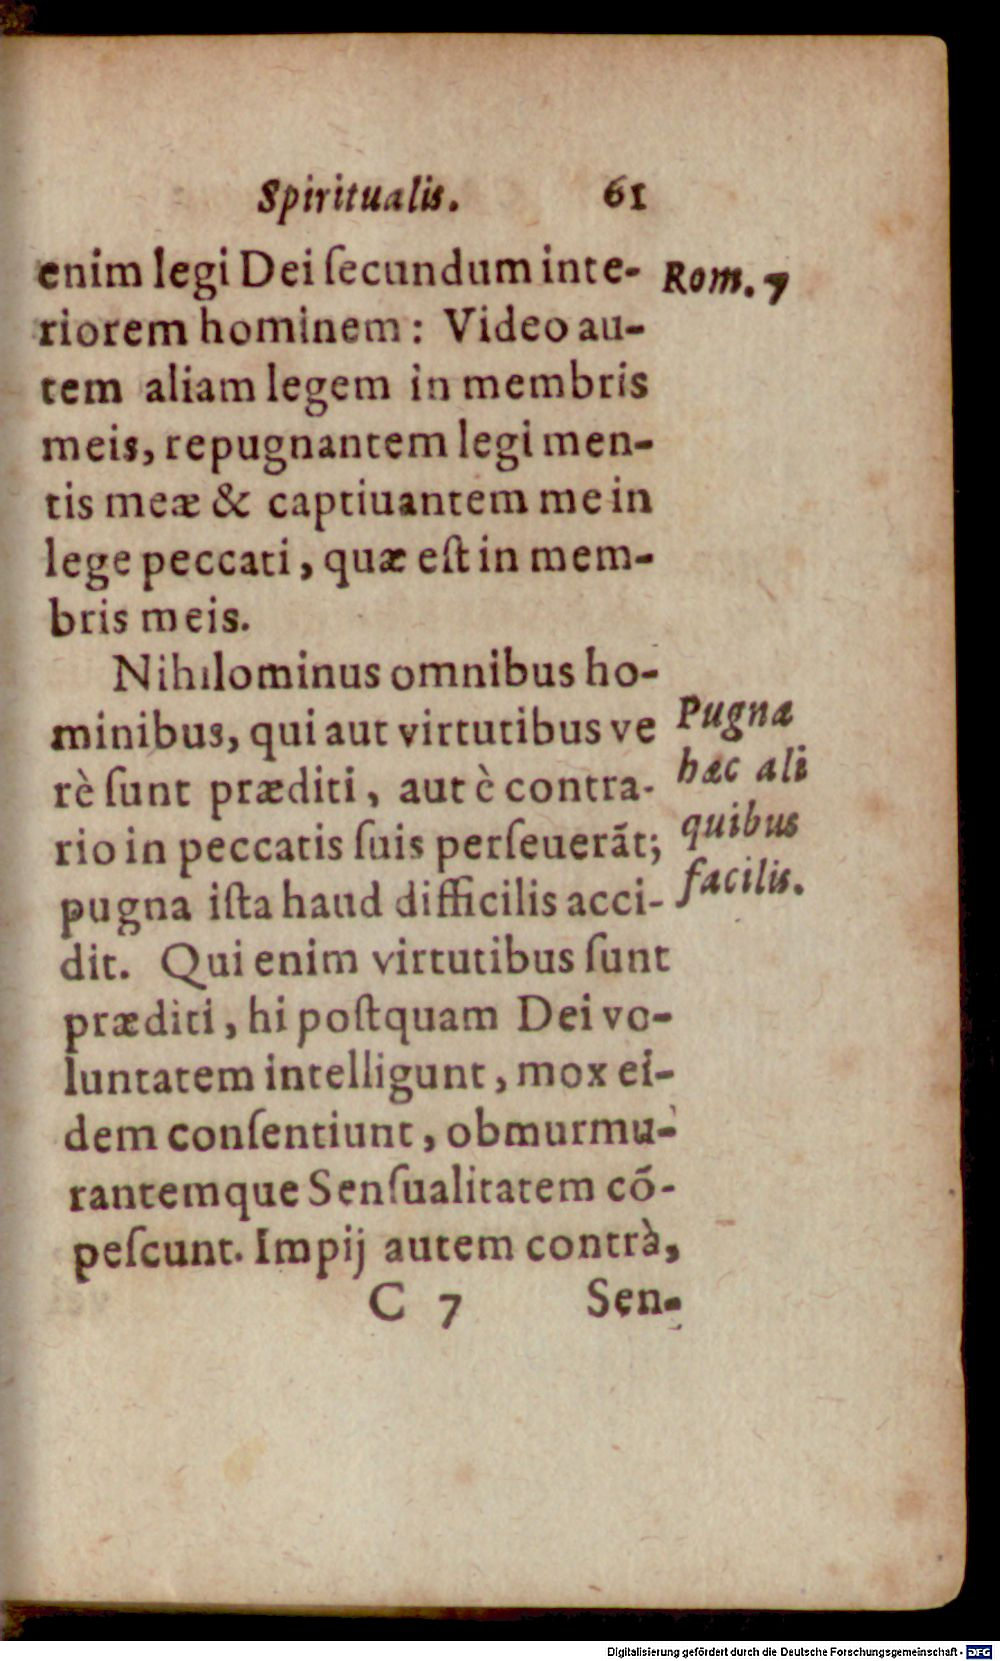 Spiritualis. 61
enim legi Dei ſecundum inte- Rom. 7
riorem hominem: Video au-
tem aliam legem in membris
meis, repugnantem legi men-
tis meæ & captiuantem me in
lege peccati, quæ eſt in mem-
bris meis.
Nihilominus omnibus ho-
minibus, qui aut virtutibus ve
rè ſunt præditi, aut è contra-
rio in peccatis ſuis perſeuerãt;
pugna iſta haud difficilis acci-
dit. Qui enim virtutibus ſunt
præditi, hi poſtquam Dei vo-
luntatem intelligunt, mox ei-
dem conſentiunt, obmurmu-
rantemque Senſualitatem cõ-
peſcunt. Impij autem contrà,
Pugna
hæc ali
quibus
facilis.
C 7 Sen-
Digitalisierung gefördert durch die Deutsche Forschungsgemeinschaft - DFG